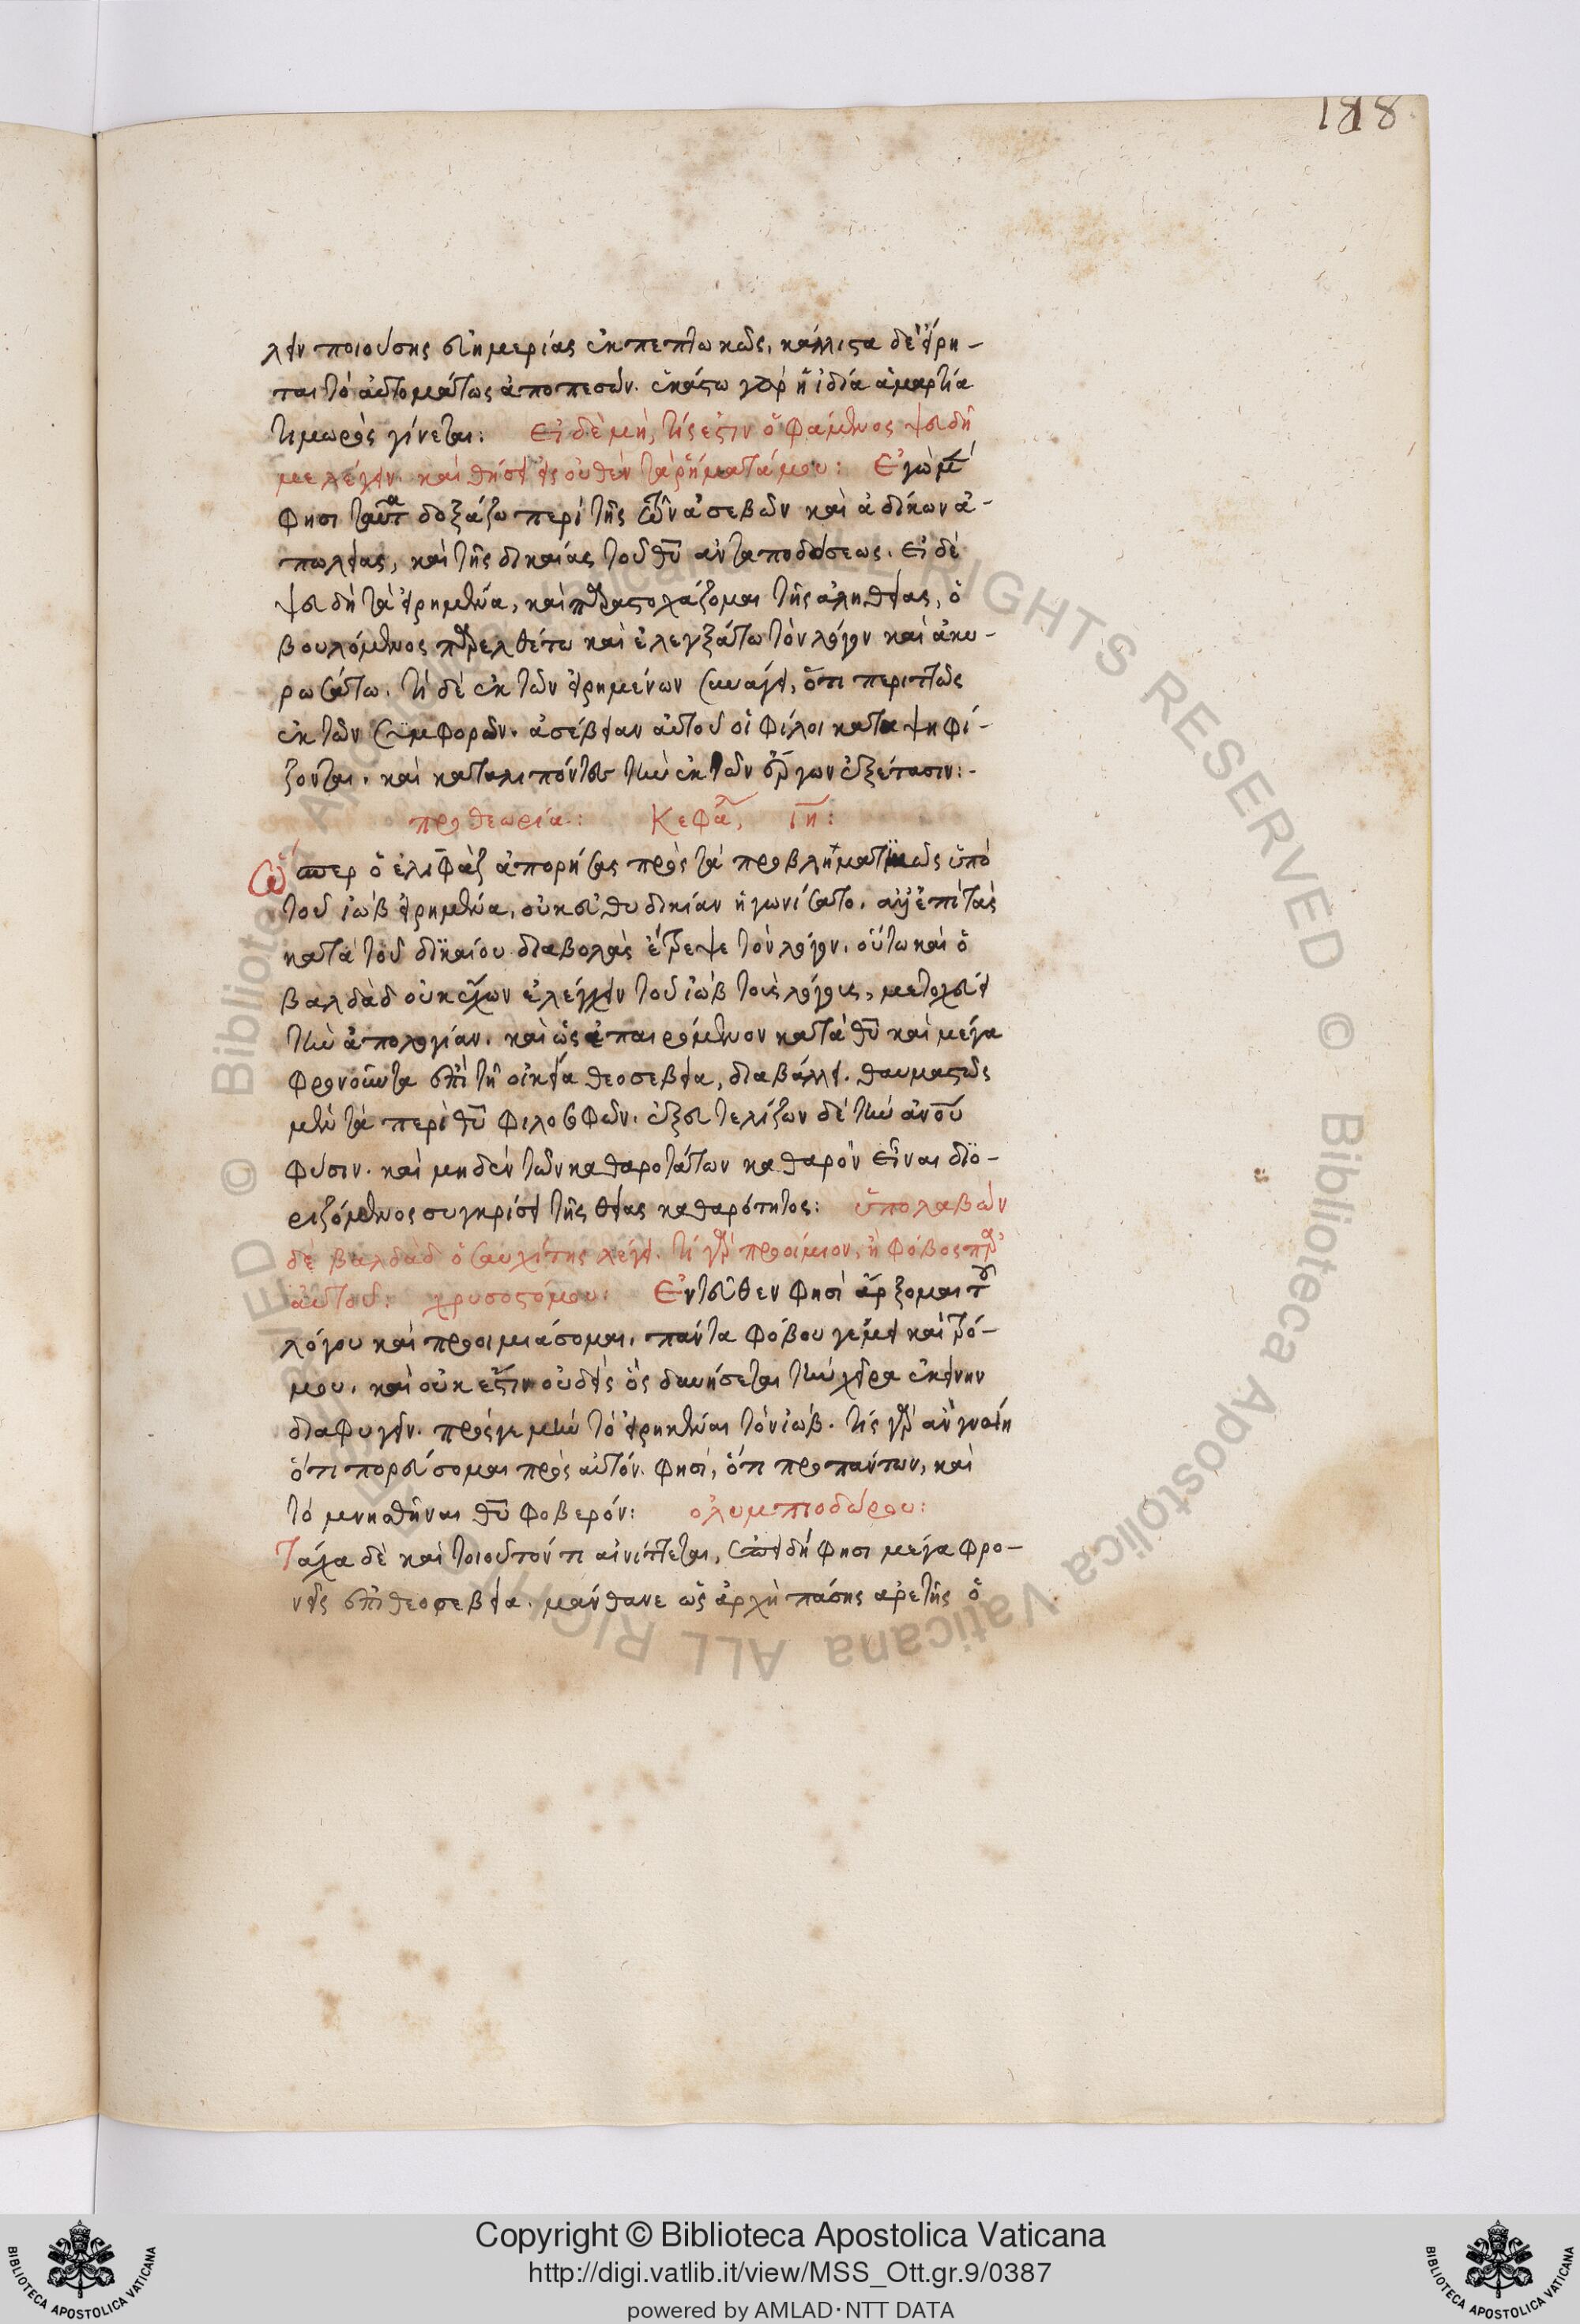 188
λειν ποιούσης εὐημερίας ἐκπεπτωκώς, κάλλιστα δὲ εἴρη-
ται τὸ αὐτομάτως ἀποπεσών. ἑκάστω γὰρ ἡ ἰδία ἁμαρτία
τιμωρὸς γίνεται: Εἰ δὲ μὴ, τίς ἐστιν ὁ φάμενος ψευδῆ
με λέγειν. καὶ θήσει εἰς οὐθὲν τὰ ῥήματά μου: Ἐγὼ μὲν
φησι ταῦτα δοξάζω περὶ τῆς τῶν ἀσεβῶν καὶ ἀδίκων ἀ-
πωλείας, καὶ τῆς δικαίας τοῦ θυ ἀνταποδόσεως. εἰ δὲ
ψευδῆ τὰ εἰρημένα, καὶ παραστοχάζομαι τῆς ἀληθείας, ὁ
βουλόμενος παρελθέτω καὶ ἐλεγξάτω τὸν λόγον καὶ ἀκυ-
ρωσάτω. τί δὲ ἐκ τῶν εἰρημένων συνάγει, ὅτι περιττῶς
ἐκ τῶν συμφορῶν. ἀσέβειαν αὐτοῦ οἱ φίλοι καταψηφί-
ζονται. καὶ καταλιπόντες τὴν ἐκ τῶν ἔργων ἐξέτασιν:-
προθεωρία: Κεφα, ιη:
Ὥσπερ ὁ ἐλιφὰζ ἀπορήσας πρὸς τὰ προβληματικῶς ὑπὸ
τοῦ ἰὼβ εἰρημένα, οὐκ εὐθυδικίαν ἠγωνίσατο. ἀλλ' ἐπὶ τὰς
κατὰ τοῦ δικαίου διαβολὰς ἔτρεψε τὸν λόγον. οὕτω καὶ ὁ
βαλδὰδ οὐκ ἔχων ἐλέγχειν τοῦ ἰὼβ τοὺς λόγους, μετοχεύει
τὴν ἀπολογίαν. καὶ ὡς ἐπαιρόμενον κατὰ θυ καὶ μέγα
φρονοῦντα ἐπὶ τῇ οἰκεία θεοσεβεία, διαβάλλει. θαυμαστῶς
μὲν τὰ περὶ θυ φιλοσοφῶν. ἐξευτελίζων δὲ τὴν ἀνου
φύσιν. καὶ μηδὲν τῶν καθαροτάτων καθαρὸν εἶναι διο-
ριζόμενος συγκρίσει τῆς θείας καθαρότητος: ὑπολαβὼν
δὲ βαλδὰδ ὁ σαυχίτης λέγει. τί γὰρ προοίμιον, ἢ φόβος παρ'
αὐτοῦ: χρυσοστόμου: Ἐντεῦθεν φησὶ ἄρξομαι τοῦ
λόγου καὶ προοιμιάσομαι. πάντα φόβου γέμει καὶ τρό-
μου. καὶ οὐκ ἔστιν οὐδεὶς ὃς δυνήσεται τὴν χεῖρα ἐκείνην
διαφυγεῖν. πρός γε μὴν τὸ εἰρηκέναι τὸν ἰώβ. τίς γὰρ ἂν γνοίη
ὅτι πορεύσομαι πρὸς αὐτόν. φησί, ὅτι προπάντων, καὶ
τὸ μνησθῆναι θυ φοβερόν: ὀλυμπιοδώρου:
Τάχα δὲ καὶ τοιοῦτόν τι αἰνίττεται, ἐπειδή φησι μέγα φρο-
νεῖς ἐπὶ θεοσεβεία. μάνθανε ὡς ἀρχὴ πάσης ἀρετῆς ὁ
Copyright © Biblioteca Apostolica Vaticana
http://digi.vatlib.it/view/MSS_Ott.gr.9/0387
powered by AMLAD·NTT DATA